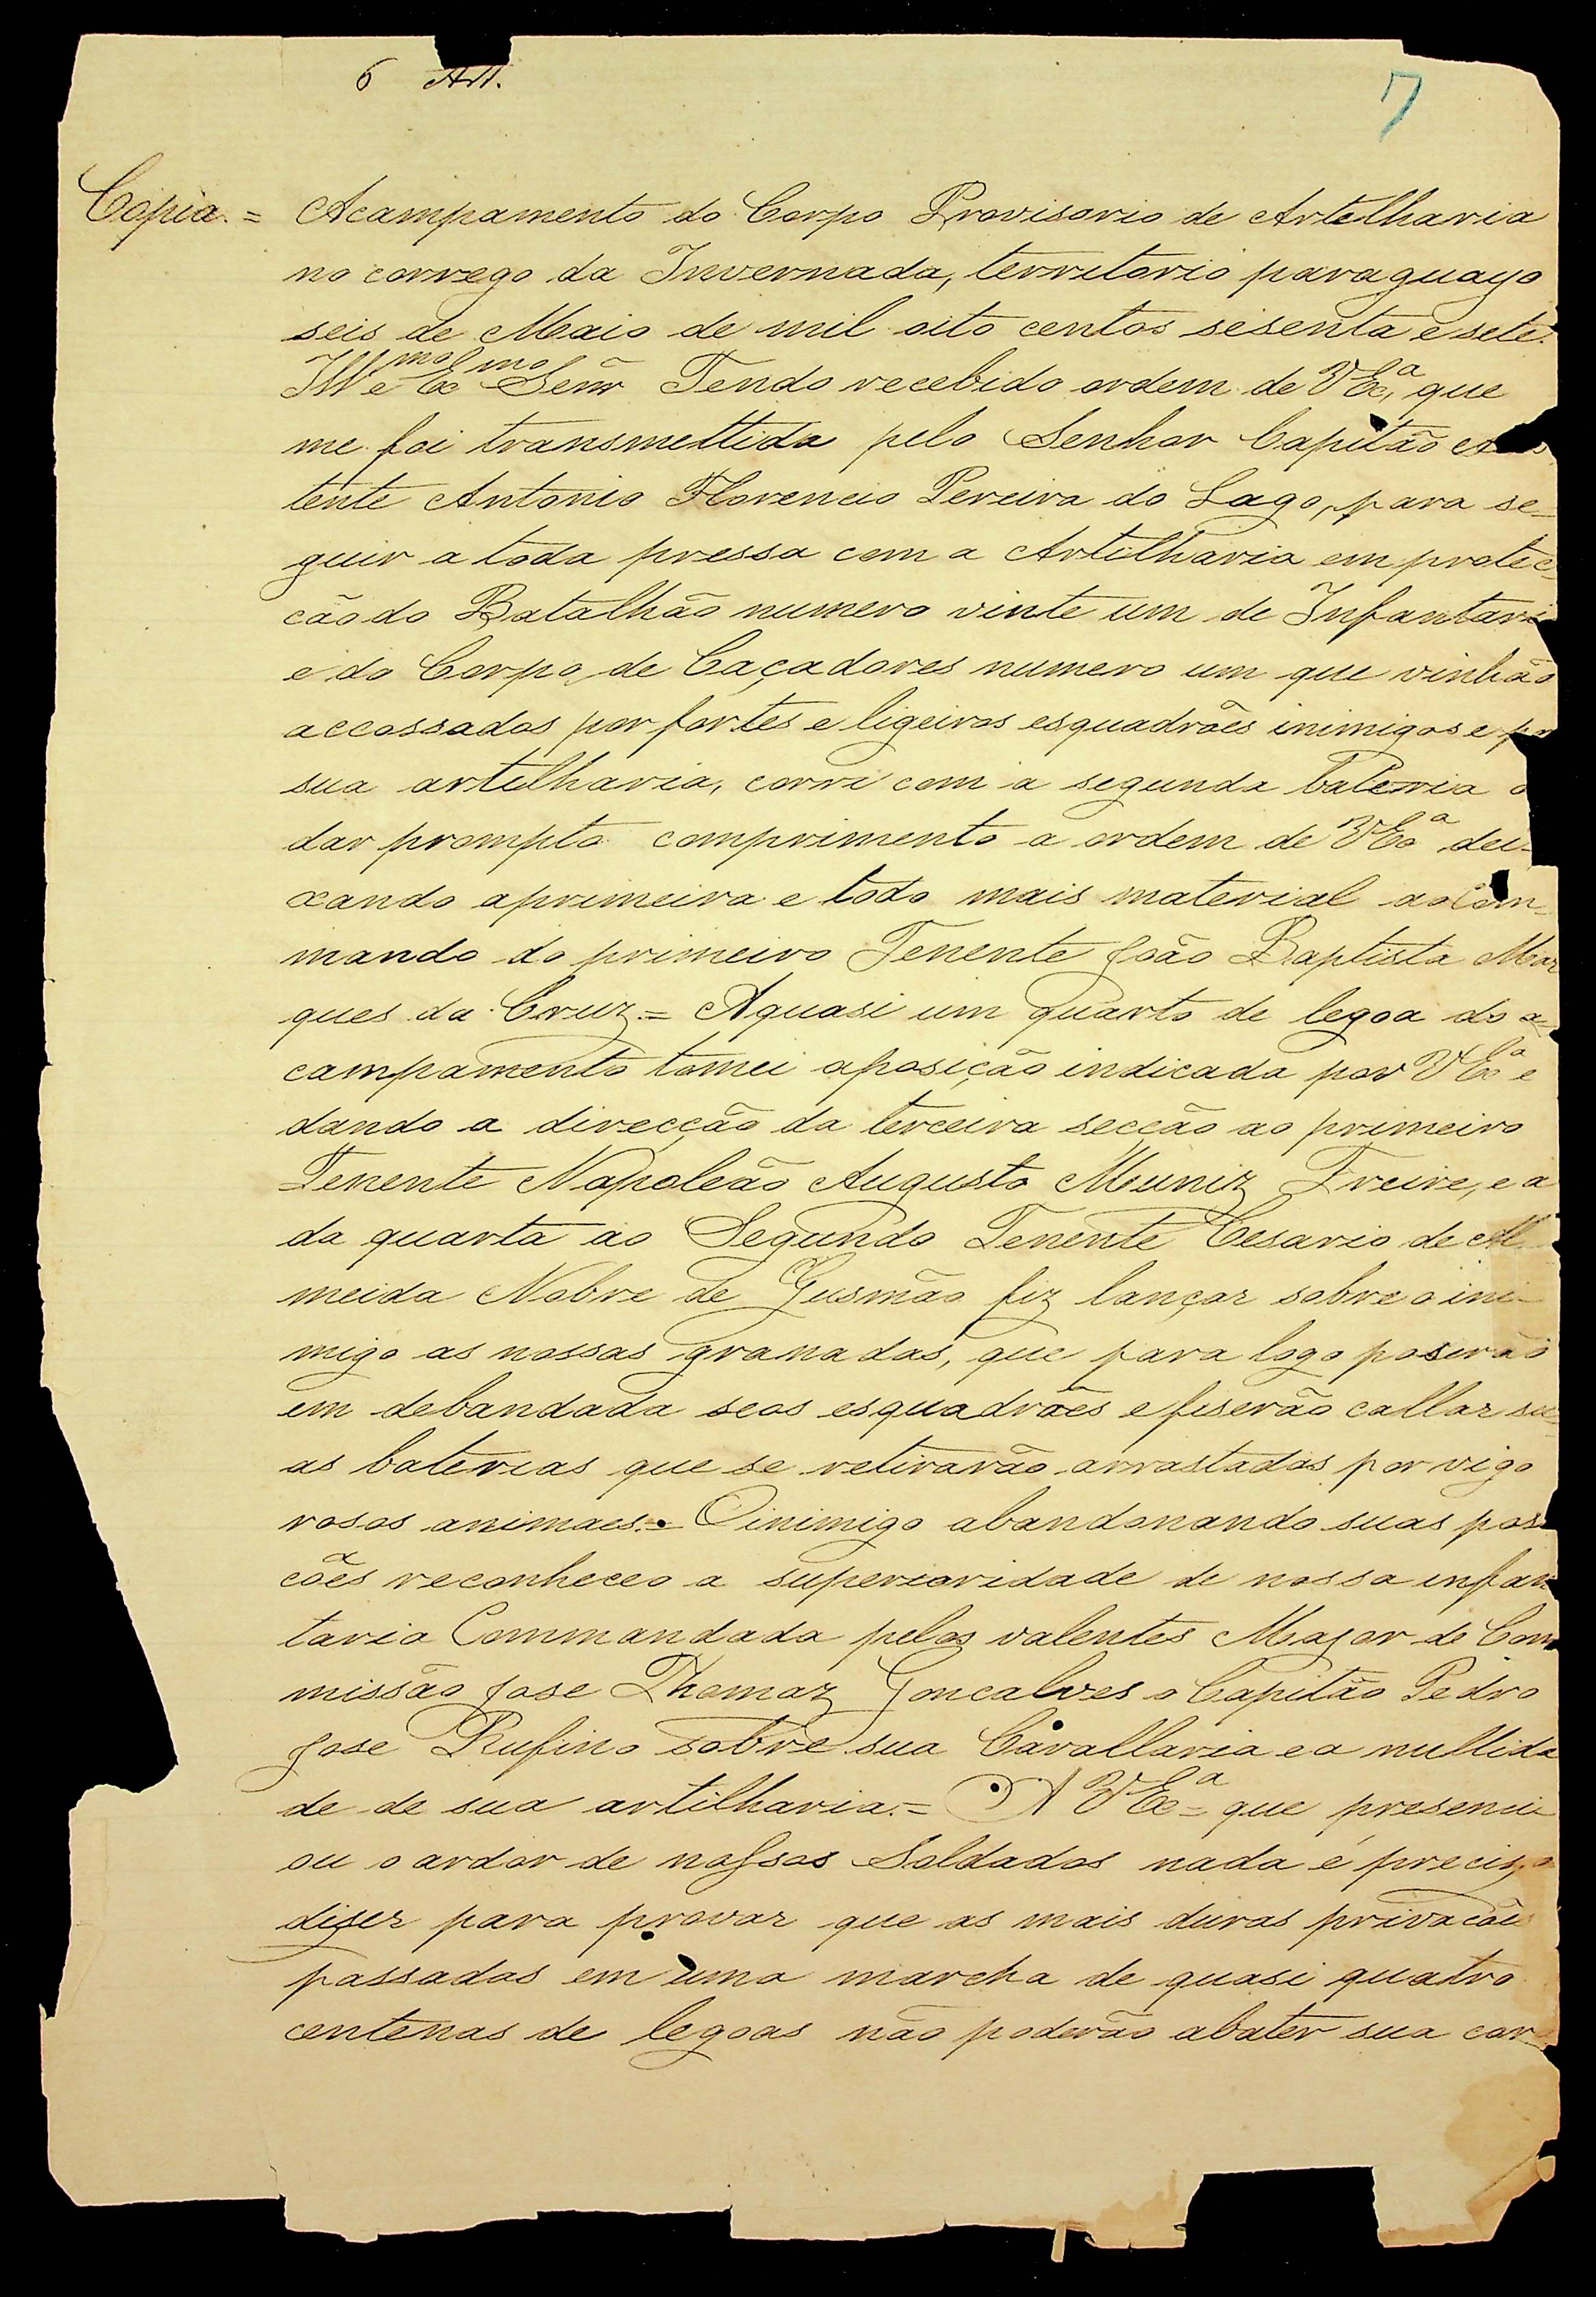 6 Art.
7
Copia. = Acampamento do Corpo Provisorio de Artelharia
no corrego da Invernada, territorio paraguayo
seis de Maio de mil oito centos sesenta e sete.
Ill.mo e Ex.mo Senr Tendo recebido ordem de VEx.a, que
me foi transmettida pelo Senhor Capitão
tente Antonio Florencio Pereira do Lago, para se=
guir a toda pressa com a Artilharia em protec=
cão do Batalhão numero vinte um de Infantari
e do Corpo de Caçadores numero um que vinhão
accossados por fortes e ligeiros esquadrões inimigos e po
sua artilharia, corri com a segunda bateria a
dar prompto comprimento a ordem de VExa dei=
xando aprimeira e todo mais material ao Com=
mando do primeiro Tenente João Baptista Mar
ques da Cruz = Aquasi um quarto de legoa do a=
campamento tomei aposição indicada por VExa e
dando a direcção da terceira secção ao primeiro
Tenente Napoleão Augusto Muniz Freire, e a
da quarta ao Segundo Tenente Cesario de Al
meida Nobre de Gusmão fiz lançar sobre o ini=
migo as nossas granadas, que para logo poserão
em debandada seos esquadrões e fiserão callar su=
as baterias que se retirarão arrastadas por vigo
rosos animaes. = O inimigo abandonando suas posi
cões reconheceo a superioridade de nossa infan
taria Commandada pelos valentes Major de Com
missão Jose Thomaz Goncalves o Capitão Pedro
Jose Rufino sobre sua Cavallaria e a nullida
de de sua artilharia. = A VExa que presenci=
ou o ardor de nossos Soldados nada é preciso
diser para provar que as mais duras privacões
passadas em uma marcha de quasi quatro
centenas de legoas não poderão abater sua cora